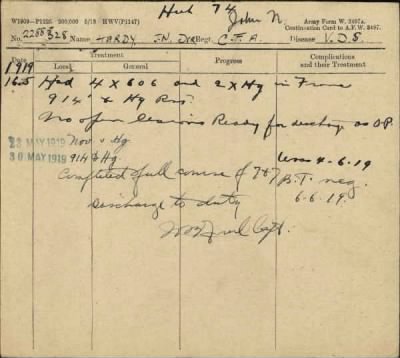 Hut 74
John N.
W1909—P1125 200,000 5/18 HWV(P1147)
Army Form W. 3497A.
Continuation Card to A.F.W. 3497.
No. 2285328 Name HARDY J.N. Dvr Regt. C.F.A. Disease V.D.S.
Date Treatment Progress Complications and their Treatment
Local General
1919
16.5 Had 4 X 606 and 2 X Hg in France
914 & Hg
No open lesions Ready for discharge as O.P.
23 MAY 1919 Nov & Hg
30 MAY 1919 914 & Hg 4-6.19
Completed full course of 7 & 7 B.T. neg.
6-6.19.
Discharge to duty
Capt.